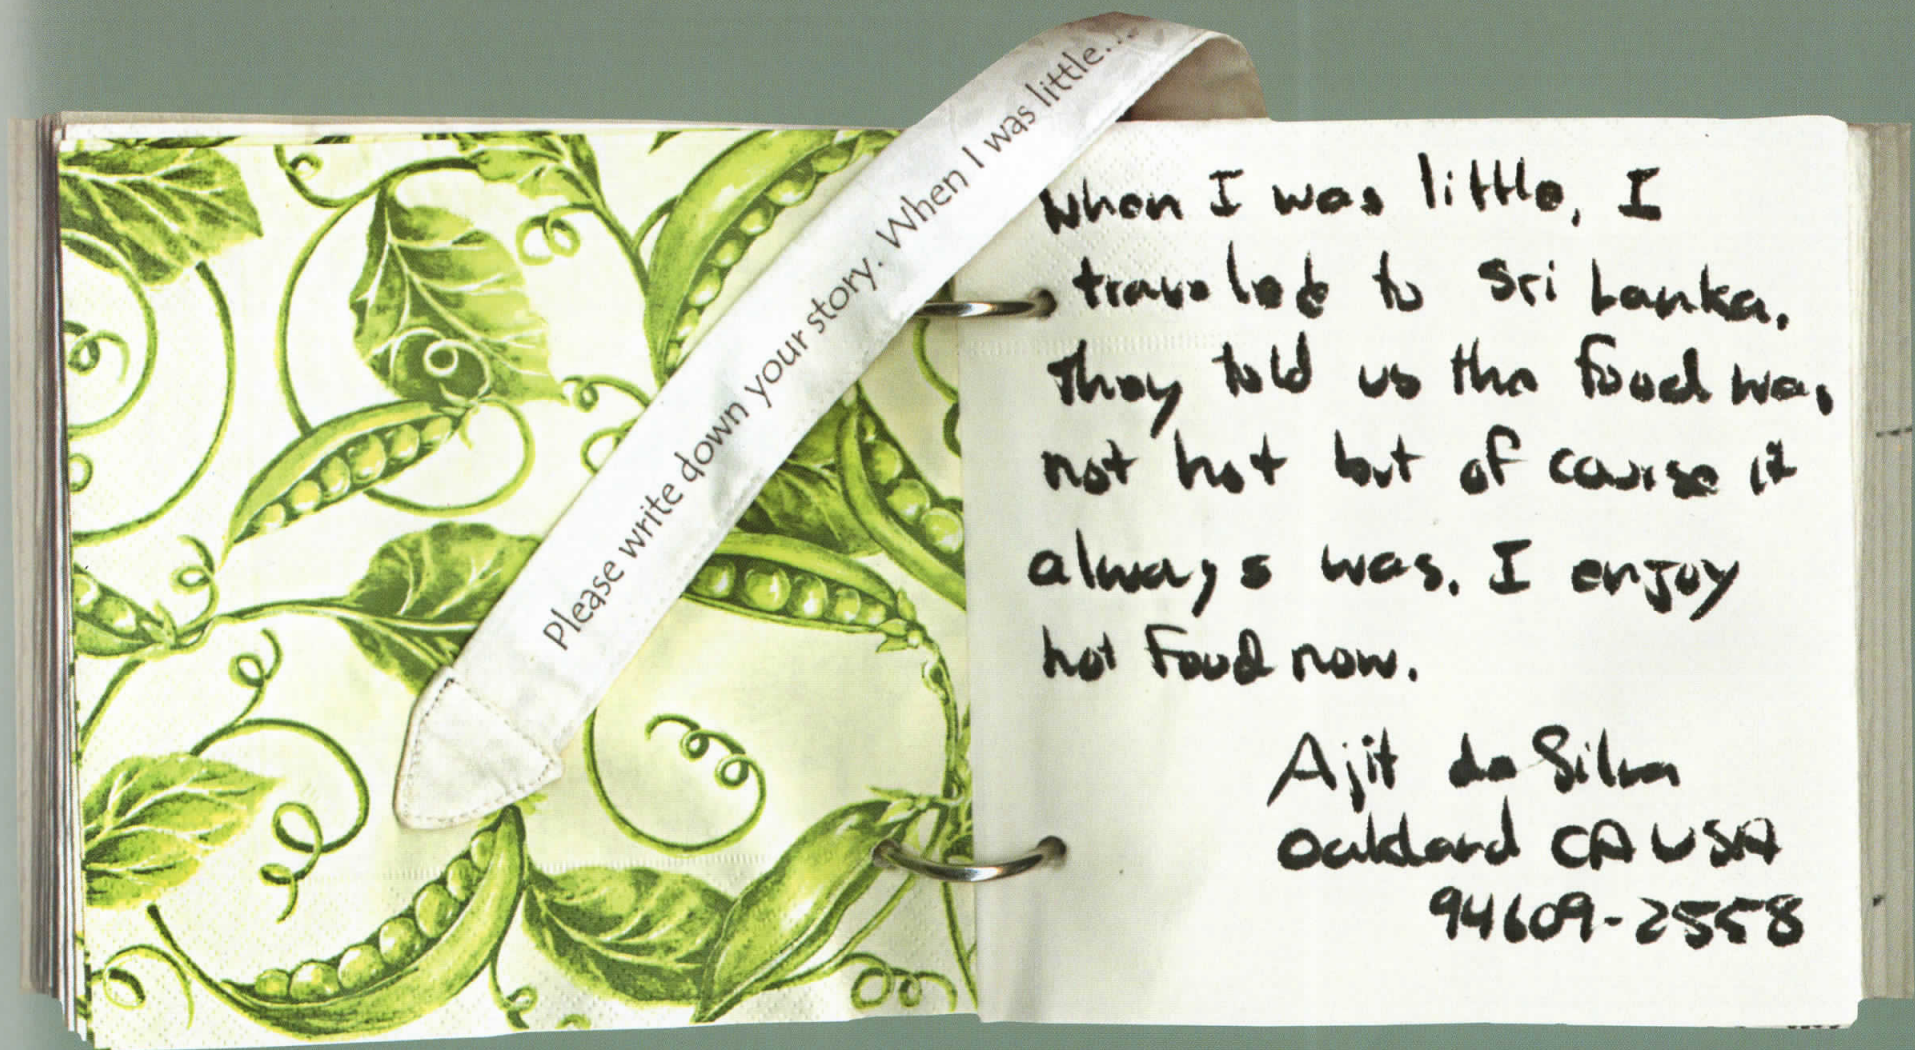 Please write down your story. When I was little...
When I was little, I
traveled to Sri Lanka.
They told us the food was
not hot but of course it
always was. I enjoy
hot food now.
Ajit da Silva
Oakland CA USA
94609-2558